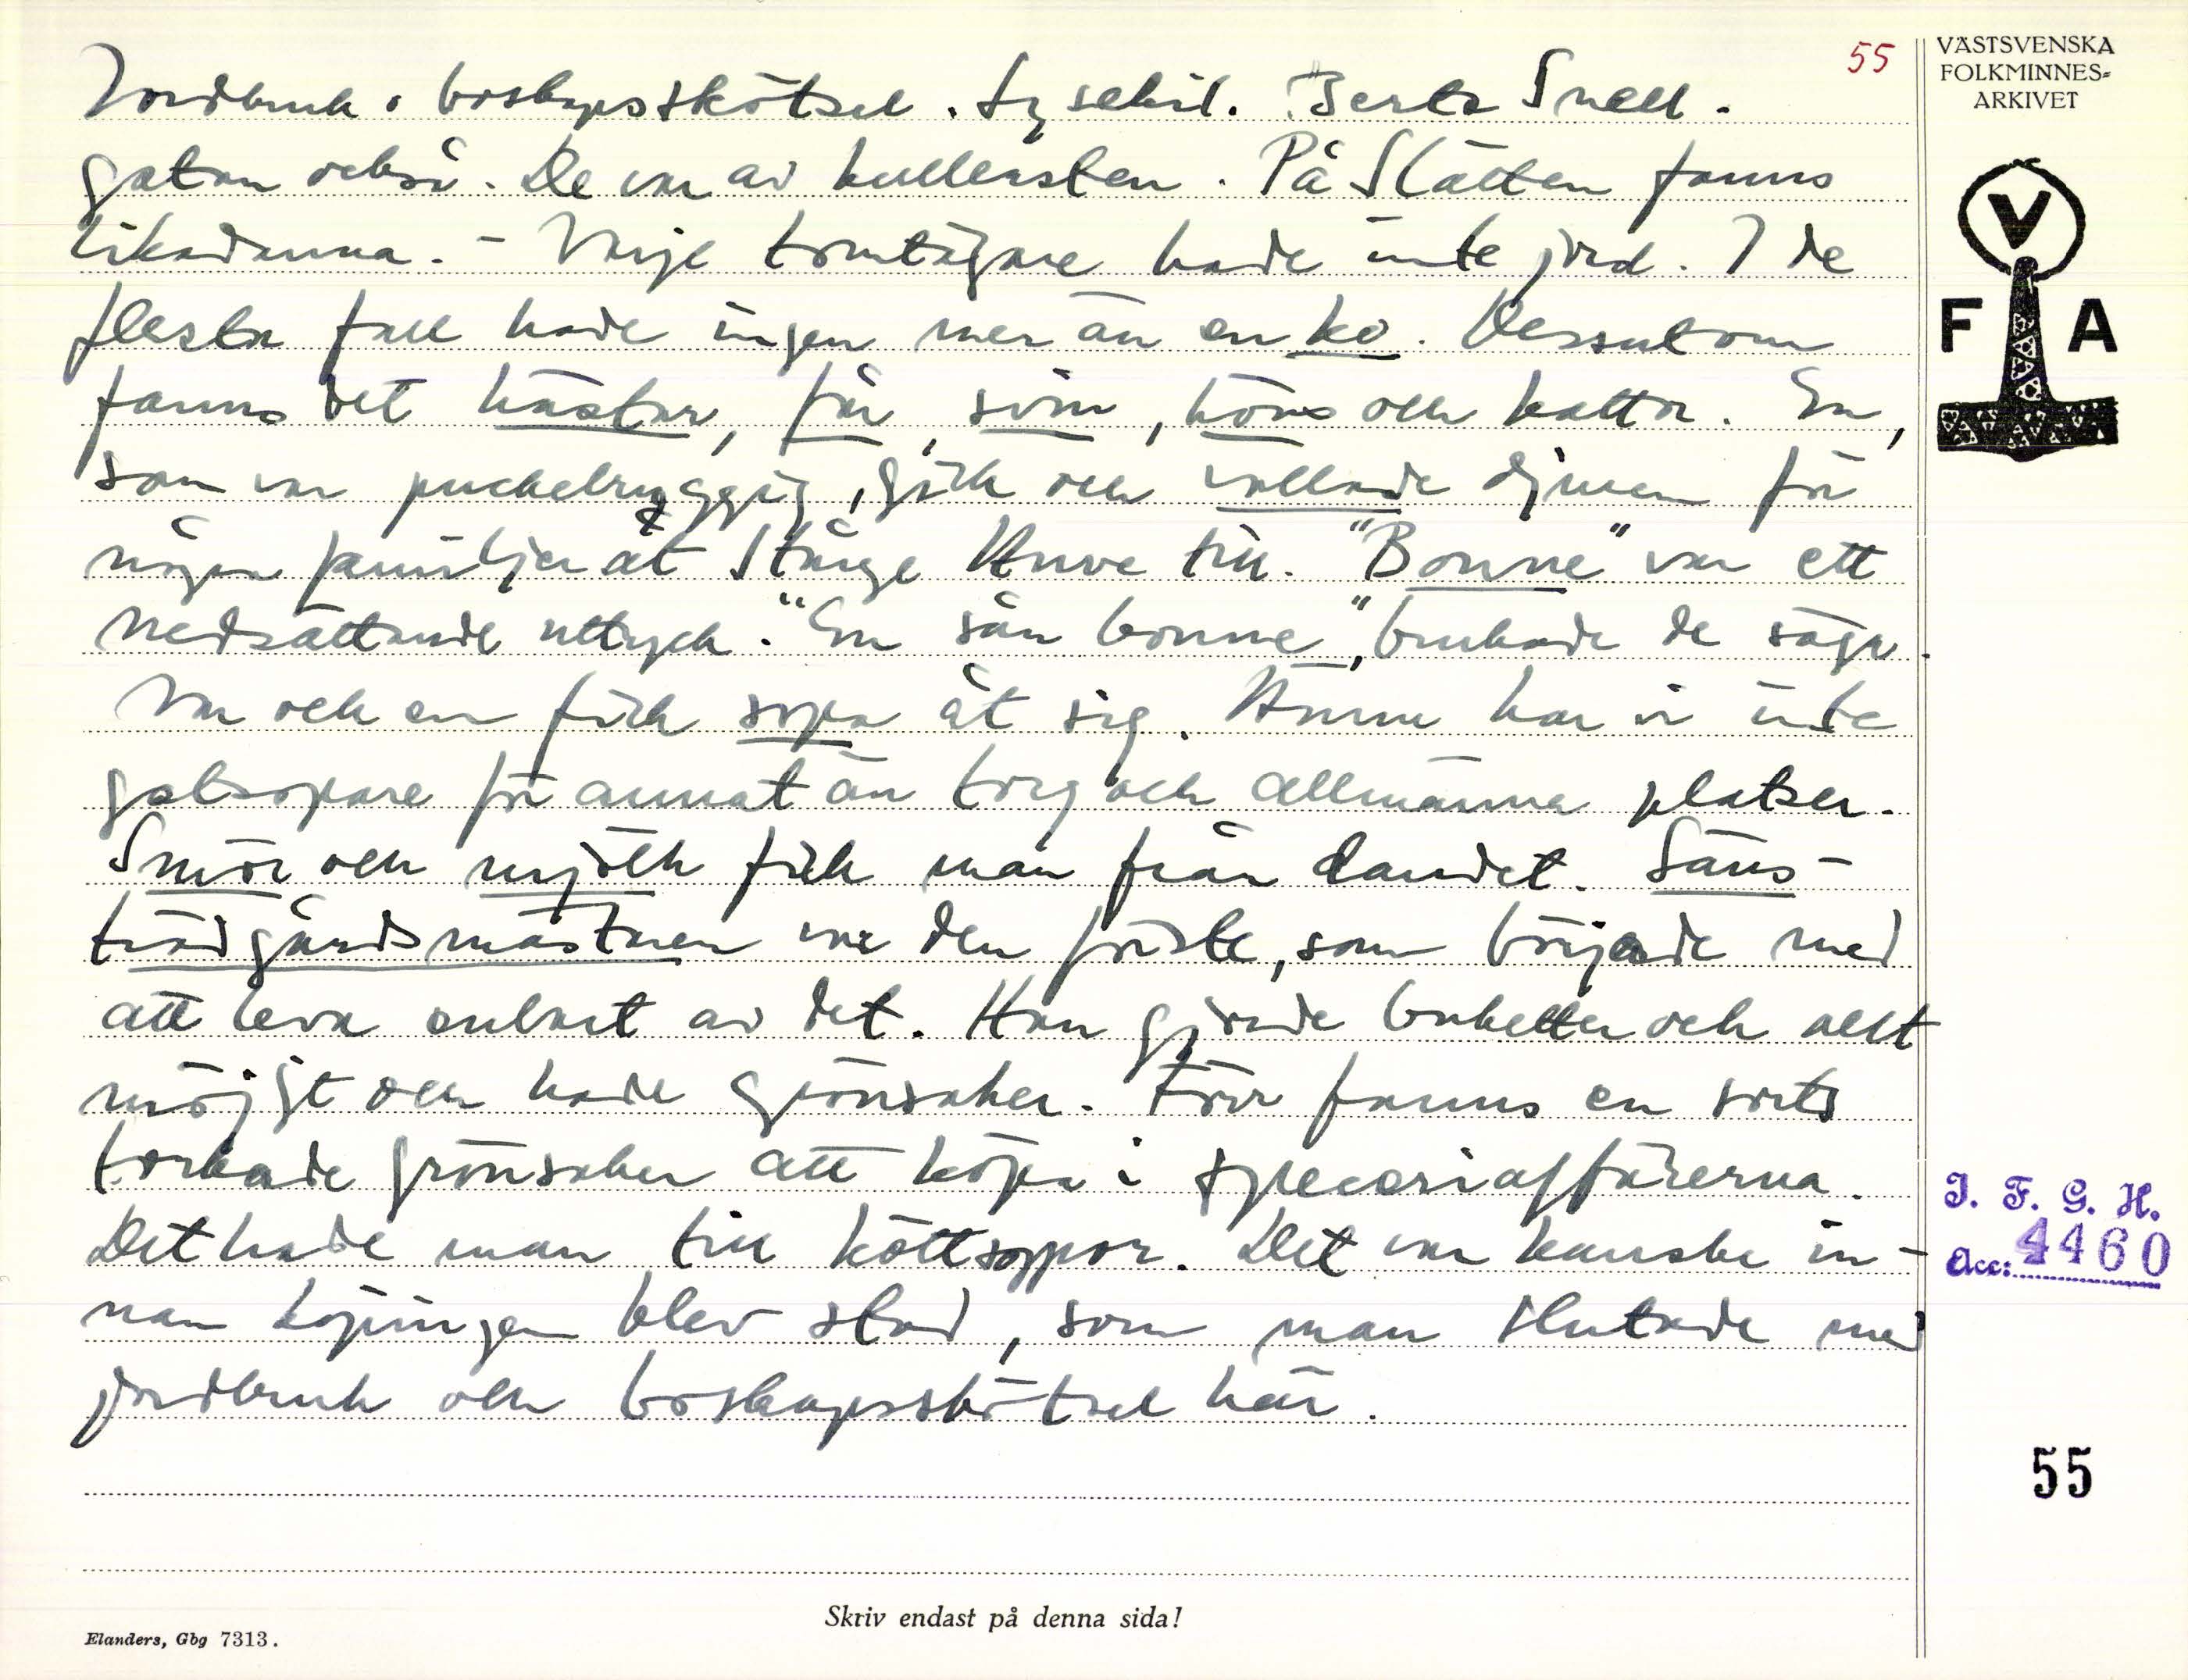 55
Jordbruk o boskapsskötsel. Lysekil. Berta Snell.
gatan också. De var av kullersten. På Slätten fanns
likadanna. - Varje tomtägare hade inte jord. I de
flesta fall hade ingen mer än en ko. Dessutom
fanns det hästar, får, svin, höns och kattor. En,
som var puckelryggig, gick och vallade djuren för
några familjer åt Stånge Huve till. "Bonne" var ett
nedsättande uttryck. "En sån bonne", brukade de säga.
Var och en fick sopa åt sig. Ännu har vi inte
gatsopare för annat än torg och allmänna platser.
Smör och mjölk fick man från landet. Säms-
trädgårdsmästaren var den förste, som började med
att leva enbart av det. Han gjorde buketter och allt
möjligt och hade grönsaker. Förr fanns en sorts
torkade grönsaker att köpa i speceriaffärerna.
Det hade man till köttsoppor. Det var kanske in-
nan köpingen blev stad, som man slutade med
jordbruk och boskapsskötsel här.
VÄSTSVENSKA
FOLKMINNES=
ARKIVET
V
F A
I. F. G. H.
Acc: 4460
55
Skriv endast på denna sida!
Elanders, Gbg 7313.